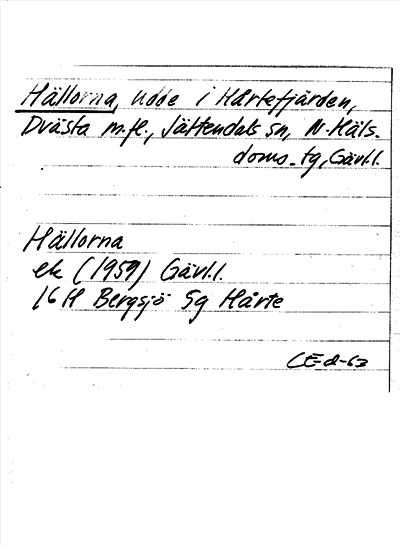 Hällorna, udde i Hårtefjärden,
Dvästa m.fl., Jättendals sn, N. Häls.
doms. tg, Gävl.l.
Hällorna
ek (1959) Gävl.l.
16 H Bergsjö 5g Hårte
CE-d-63